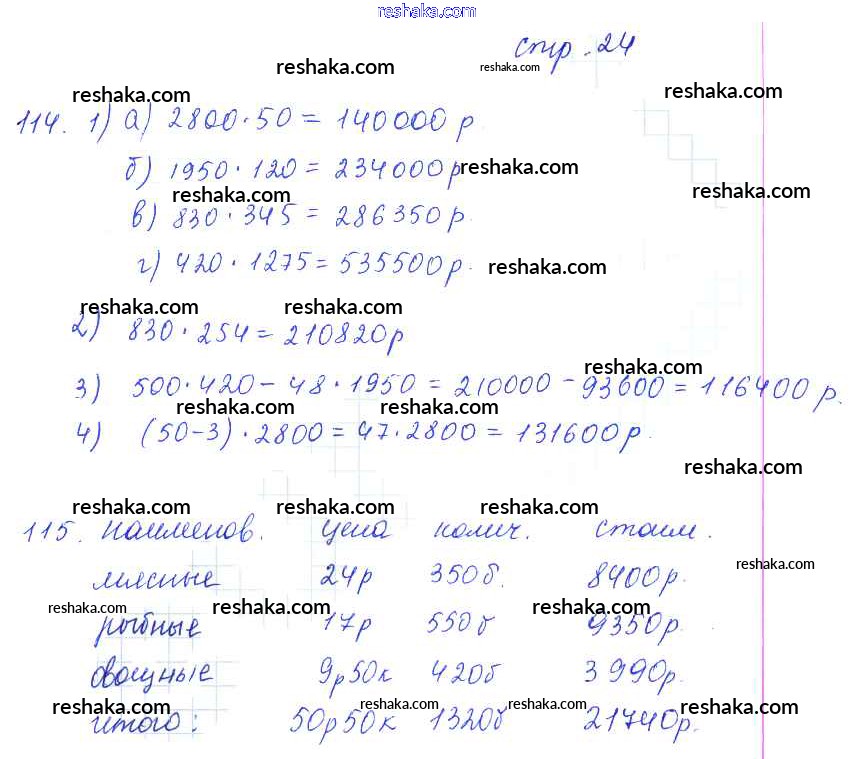 reshaka.com
стр. 24
reshaka.com reshaka.com
reshaka.com reshaka.com
114. 1) а) 2800·50 = 140000 р
б) 1950·120 = 234000р reshaka.com
reshaka.com reshaka.com
в) 830·345 = 286350 р.
г) 420·1275 = 535500 р. reshaka.com
reshaka.com reshaka.com
2) 830·254 = 210820р
reshaka.com
3) 500·420 - 48·1950 = 210000 - 93600 = 116400 р.
reshaka.com reshaka.com
4) (50-3)·2800 = 47·2800 = 131600 р.
reshaka.com
reshaka.com reshaka.com reshaka.com
115. наименов. цена колич. стоим.
reshaka.com
мясные 24р 350б. 8400р.
reshaka.com reshaka.com reshaka.com
рыбные 17р 550б 9350р.
овощные 9р50к 420б 3990р.
reshaka.com reshaka.com reshaka.com reshaka.com reshaka.com
итого: 50р50к 1320б 21740р.